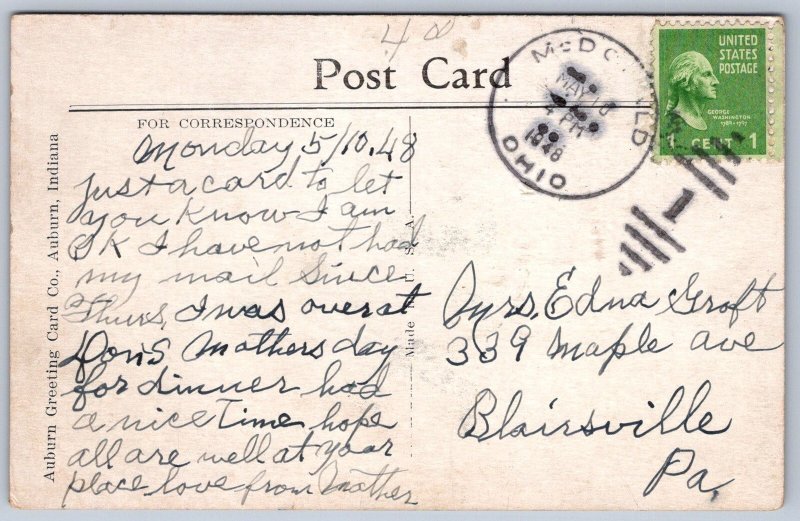 40
Post Card
FOR CORRESPONDENCE
Monday 5/10.48
Just a card to let
you know I am
OK I have not had
my mail since
Thurs, I was over at
Dons Mothers day
for dinner had
a nice time hope
all are well at your
place love from Mother
Auburn Greeting Card Co., Auburn, Indiana
Made U. S. A.
McDONALD
MAY 10
4 PM
1948
OHIO
UNITED
STATES
POSTAGE
GEORGE
WASHINGTON
1789-1797
1 CENT 1
Mrs. Edna Groft
339 Maple ave
Blairsville
Pa.